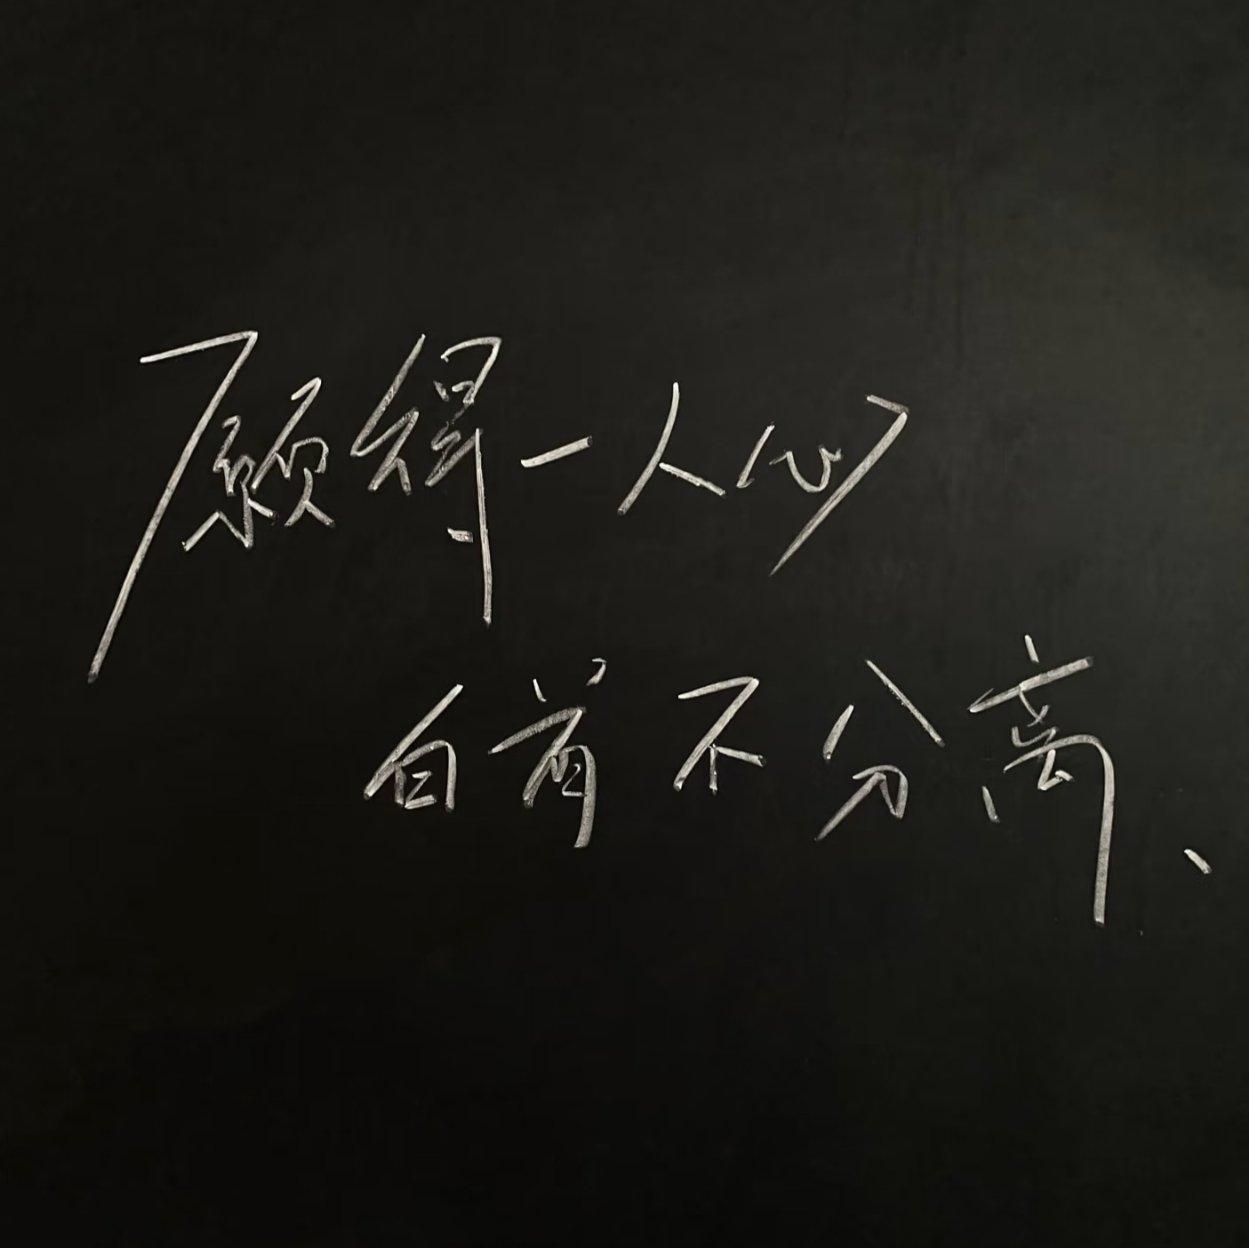 愿得一人心
白首不分离、